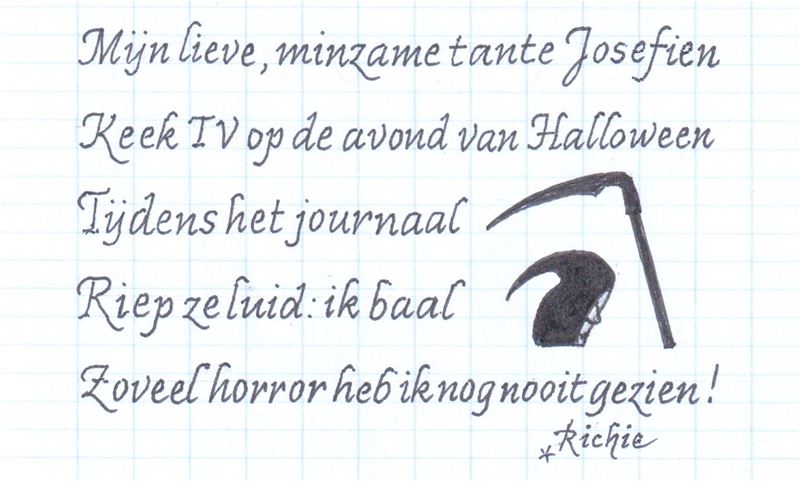 Mijn lieve, minzame tante Josefien
Keek TV op de avond van Halloween
Tijdens het journaal
Riep ze luid: ik baal
Zoveel horror heb ik nog nooit gezien!
*Richie